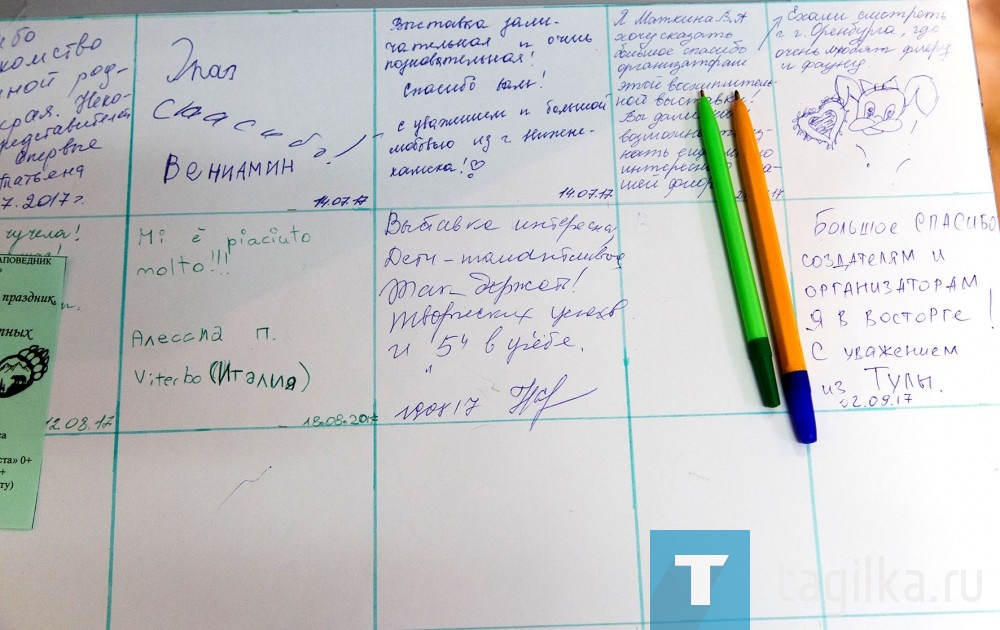 ибо
комство
ной род-
края. Неко-
редставителей
впервые
Татьяна
7.2017г.
Спасибо!
ВЕНИАМИН
14.07.17
Выставка заме-
чательная и очень
познавательная!
Спасибо Вам!
С уважением и большой
любовью из г. Нижне-
камска!
14.07.17
Я Маткина В.А
хочу сказать
большое спасибо
организаторам
этой восхититель-
ной выставки!
интересно
шей флор
Ехали смотреть
г. Оренбурга, где
очень любят флору
и фауну.
чучела!
АПОВЕДНИК
праздник,
тных
ста» 0+
+
ту)
12.08.17
Mi è piaciuto
molto!!!
Алессиа П.
Viterbo (Италия)
18.08.2017
Выставка интересна,
Дети - талантливы
Так держать!
Творческих успехов
и "5" в учёбе.
Большое СПАСИБО
СОЗДАТЕЛЯМ И
ОРГАНИЗАТОРАМ
Я В ВОСТОРГЕ!
С уважением
из Тулы.
02.09.17
T
tagilka.ru